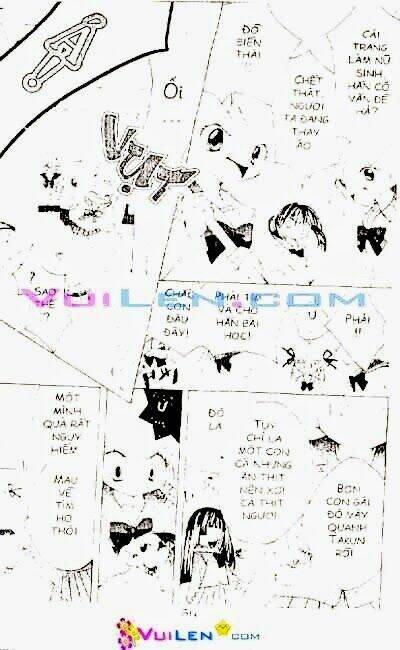 CẢI
TRANG
LÀM NỮ
SINH,
HẮN CÓ
VẤN ĐỀ
HẢ?
CHẾT
THẬT,
NGƯỜI
TA ĐANG
THAY
ÁO
ĐỒ
BIẾN
THÁI
!!
Ối
VỤT
A
SAO
THẾ
?
PHẢI
!!
Ừ
PHẢI TÌM
VÀ CHO
HẮN BÀI
HỌC!
CHẮC
CÒN
ĐÂU
ĐÂY!
VuiLen.com
BỌN
CON GÁI
ĐÓ VÂY
QUANH
TAKUN
RỒI
TUY
CHỈ LÀ
MỘT CON
CÁ NHƯNG
ĂN THỊT
NÊN XƠI
CẢ THỊT
NGƯỜI
ĐÓ
LÀ
Ừ
MỘT
MÌNH
QUẢ RẤT
NGUY
HIỂM
MAU
VỀ
TÌM
HỌ
THÔI
VuiLen.com